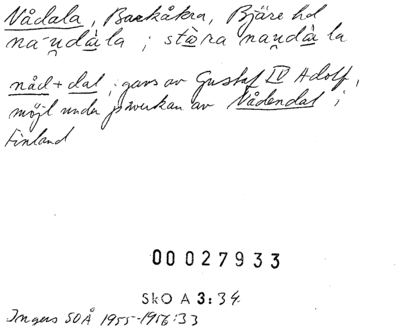 Nådala, Backåkra, Bjäre hd
na-ṷdà la ; stòra naṷdà la
nåd + dal ; gavs av Gustaf IV Adolf,
möjl under påverkan av Nådendal i
Finland
00027933
SkO A 3:34
Ingers SOÅ 1955-1956:33